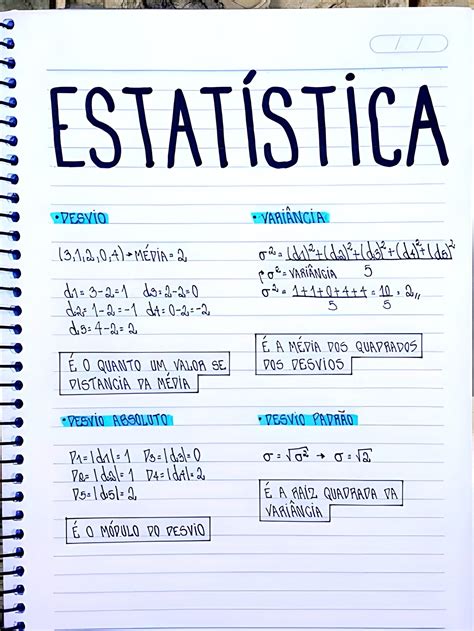 ESTATÍSTICA
• DESVIO
(3,1,2,0,4) → MÉDIA = 2
d1 = 3-2=1 d3 = 2-2=0
d2 = 1-2=-1 d4 = 0-2=-2
d5 = 4-2=2
É O QUANTO UM VALOR SE
DISTANCIA DA MÉDIA
• VARIÂNCIA
σ² = (d1)²+(d2)²+(d3)²+(d4)²+(d5)²
5
σ² = VARIÂNCIA
σ² = 1+1+0+4+4 = 10 = 2,,
5 5
É A MÉDIA DOS QUADRADOS
DOS DESVIOS
• DESVIO ABSOLUTO
D1 = |d1| = 1 D3 = |d3| = 0
D2 = |d2| = 1 D4 = |d4| = 2
D5 = |d5| = 2
É O MÓDULO DO DESVIO
• DESVIO PADRÃO
σ = √σ² → σ = √2
É A RAÍZ QUADRADA DA
VARIÂNCIA